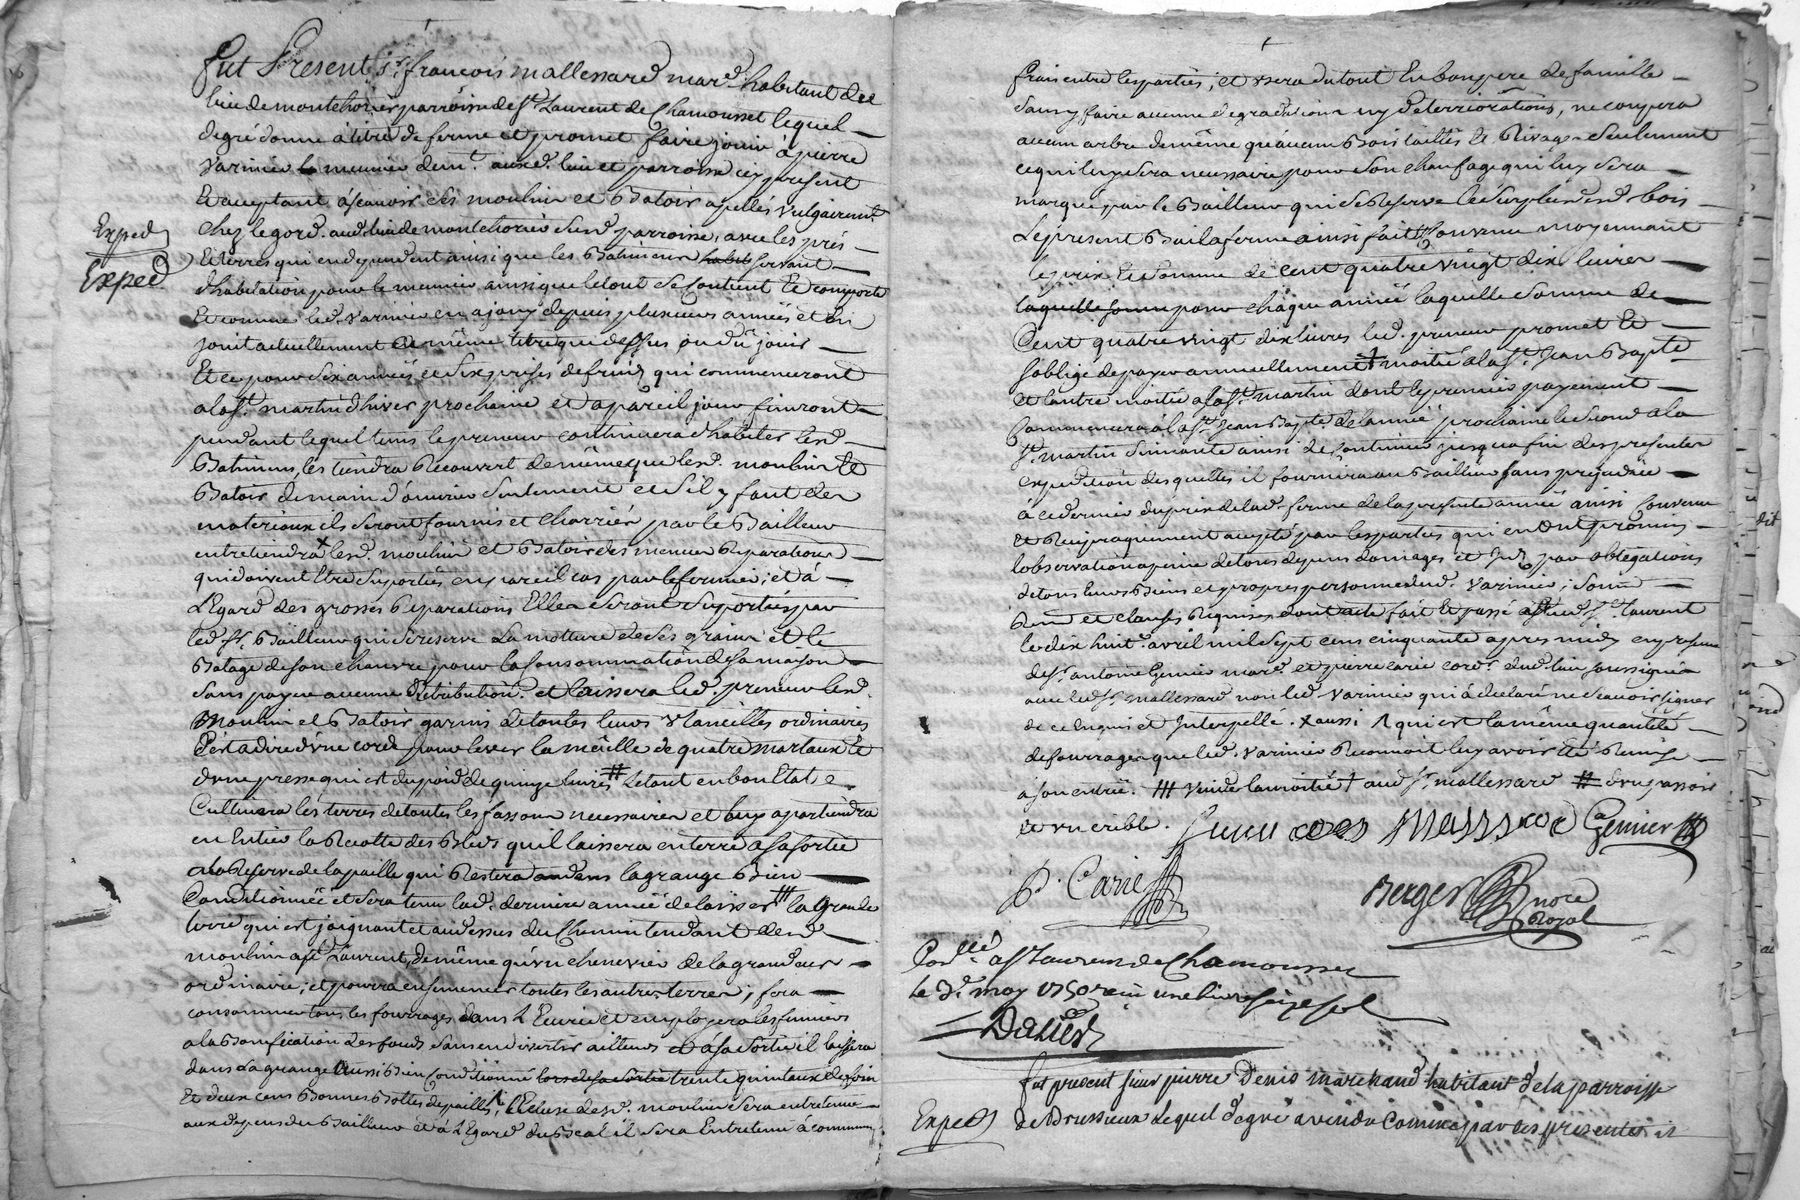 fut Present sr. francois mallessard mard. habitant du
lieu de montchorier parroisse de st Laurent de Chamousset lequel
degré donne a titre de ferme et promet faire jouir a pierre
varinier le meunier demt. aud. lieu et parroisse icy present
Et acceptant a scavoir ses moulin et Batoir apellés vulgairemt.
Chez le gord. aud. lieu de montchorier susd. parroisse, avec les prés
Et terres qui en dependent ainsi que les Batimens servant
Exped
Exped
d'habitation pour le meunier ainsi que le tout se Contient Et comporte
Et comme led. varinier en a jouy depuis plusieurs années et en
jouit actuellement au même titre que dessus ou dû jouir
Et ce pour six années et six prises de fruits qui commenceront
a la st. martin d'hiver prochaine et a pareil jour finiront
pendant lequel tems le preneur continuera d'habiter lesd.
Batimens, les tiendra Recouvert de même que lesd. moulin Et
Batoir de main d'ouvrier seulement et s'il y faut des
materiaux ils seront fournis et charriés par le Bailleur
entretiendra x lesd. moulin et Batoir des menues Reparations
qui doivent Etre suportés en pareil cas par le fermier; et à
L'Egard des grosses Reparations Elles seront suportées par
led. sr. Bailleur qui se reserve La motture de ses grains et le
Batage de son chanvre pour la Consommation de sa maison
sans payer aucune Retribution. et laissera led. preneur lesd.
Moulin et Batoir garnis de toutes leurs Utancilles ordinaires
C'est a dire d'une corde pour lever la meulle de quatre martaux Et
d'une presse qui est du poid de quinze livres # Le tout en bon Etat
Cultivera les terres de toutes les fassons necessaires et luy apartiendra
en Entier la Recolte des Bleds qu'il laissera en terre a sa sortie
a la Reserve de la paille qui Restera dans la grange Bien
Conditionnée et sera tenu lad. derniere année de laisser ### la grande
terre qui est joignante et au dessus du Chemin tendant dud.
moulin a st Laurent, de même qu'un chenevier de la grandeur
ordinaire; et pourra ensemencer toutes les autres terres; fera
consommer tous les fourrages dans L'Ecurie et employera les fumiers
a la Bonification des fonds sans en divertir ailleurs et a sa sortie il laissera
dans la grange aussi Bien Conditionné lors de sa sortie trente quintaux de foin
Et deux cens Bonnes Bottes de paille ^, L'Ecluse desd. moulin sera entretenue
aux depens du Bailleur et à L'Egard du Beal il sera Entretenu à communs
frais entre les parties, et usera du tout En bon pere de famille
sans y faire aucune degradations ny deterriorations, ne coupera
aucun arbre de même qu'aucuns Bois taillis et Rivage seulement
ce qui luy sera necessaire pour son chaufage qui luy sera
marqué par le Bailleur qui se Reserve le surplus desd. bois
Le present Bail a ferme ainsi fait Et Convenu moyennant
le prix Et somme de cent quatre vingt dix livres
laquelle somme pour chaque année laquelle somme de
Cent quatre vingt dix livres led. preneur promet Et
s'oblige de payer annuellement † moitié a la st. Jean Bapte
Et l'autre moitié a la st. martin dont le premier payement
Commencera à la st. Jean Bapte. de l'année prochaine le second a la
st. martin suivante ainsi de Continuer jusqu'a fin des presentes
expedition desquelles il fournira au Bailleur sans prejudice
à ce dernier du prix de lad. ferme de la presente année ainsi Convenu
Et Reciproquement accepté par les parties qui en Ont promis
l'observation a peine de tous depens domages et Int. par obligations
de tous leurs Biens et propre personne dud. varinier; soum.
Ren. et clauses Requises dont acte fait Et passé aud. st. Laurent
le dix huit. avril mil sept cens cinquante apres midy en presence
de sr. antoine Genier mard. et pierre Carie cordr. dud. lieu soussignés
avec led. sr. mallessard non led. varinier qui a declaré ne scavoir signer
de ce Enquis et Interpellé. x aussi ^ qui est la même quantité
de fourrages que led. varinier Reconnoit luy avoir Eté Remise
à son entrée. ### vuide la moitié † aud sr. mallessard # d'un passoir
Et un crible.
Genier
P. Carie
Berger nore
Royal
Conllé. a st Laurens de Chamousset
le 3e. may 1750 reçu une livre seize sols
Dalier
fut present sieur pierre Denis marchand habitant de la parroisse
Exped
de Brussieux Lequel de gré a vendu Comme par ces presentes il